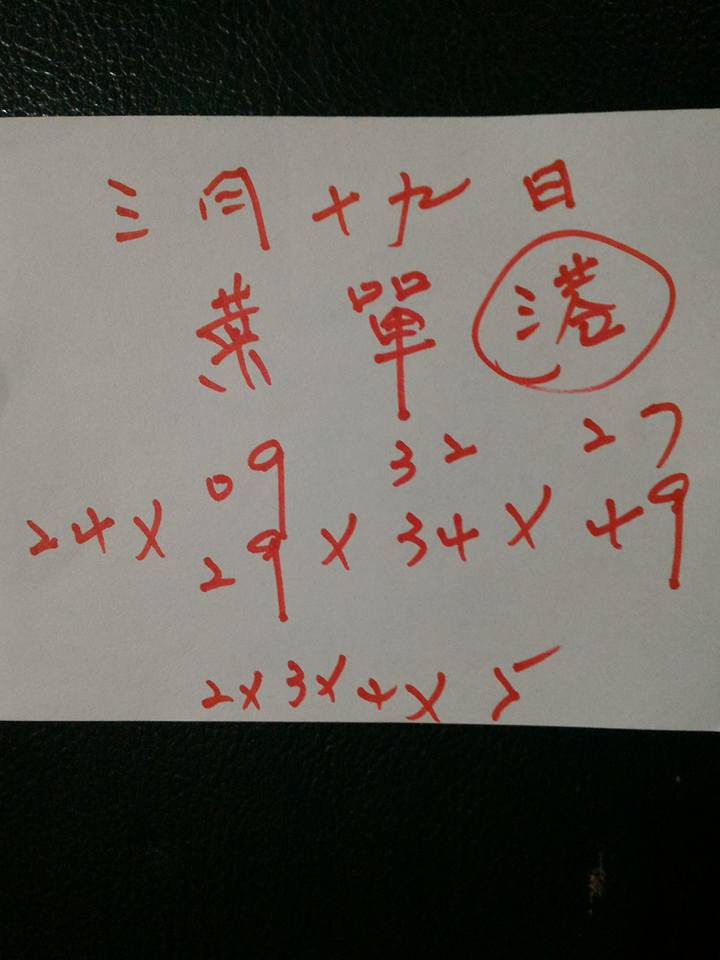 三月十九日
菜單 港
09 32 27
24 x 29 x 34 x 49
2x3x4x5